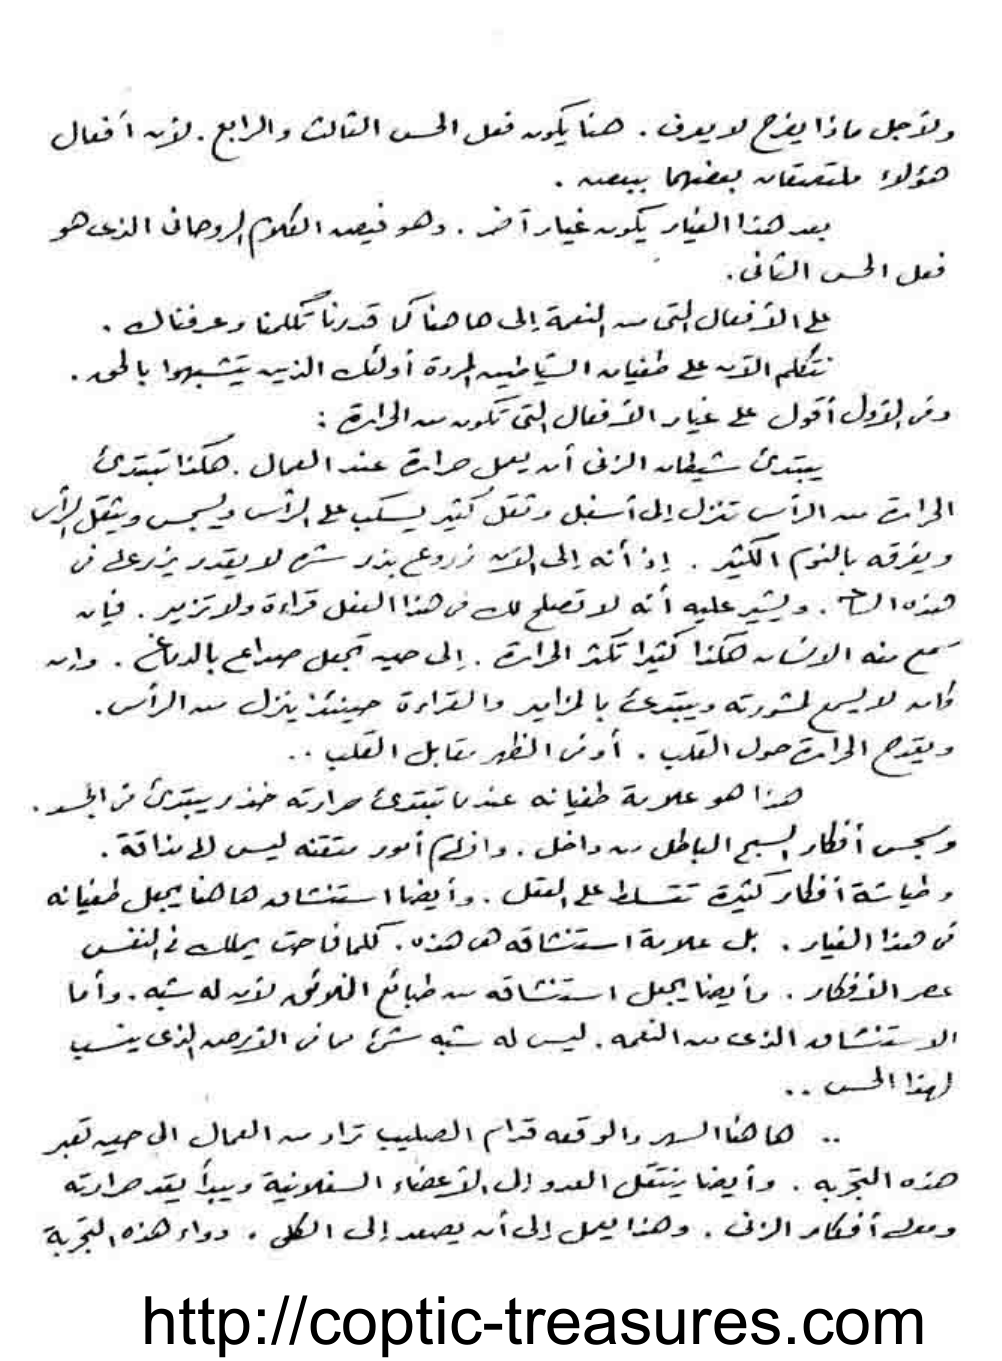 ولأجل ماذا يفرح لا يعرف . هنا يكون فعل الحس الثالث والرابع . لأن أفعال
هؤلاء ملتصقان بعضهما ببعض .
بعد هذا الغيار يكون غيار آخر . وهو فيض الكلام الروحانى الذى هو
فعل الحس الثانى .
على الأفعال التى من النعمة إلى ها هنا كما قدرنا تكلمنا وعرفناك .
نتكلم الآن على طغيان الشياطين المردة أولئك الذين يتشبهوا بالحق .
وفى الأول أقول على غيار الأفعال التى تكون من الحرارة :
يبتدئ شيطان الزنى أن يعمل حرارة عند العمال . هكذا تبتدئ
الحرارة من الرأس تنزل إلى أسفل وثقل كثير يسكب على الرأس ويسجس ويثقل الرأس
ويغرقه بالنوم الكثير . إذ أنه إلى الآن زروع بذر شره لا يقدر يزرعه فى
هذه الساعة . ويشير عليه أنه لا تصلح لك فى هذا الفعل قراءة ولا تزمير . فإن
سمع منه الإنسان هكذا كثيرا تكثر الحرارة . إلى حين تجعل صداع بالدماغ . وإن
كان لا يسمع لمشورته ويبتدئ بالمزامير والقراءة حينئذ ينزل من الرأس .
ويقدح الحرارة حول القلب . أو فى الظهر مقابل القلب ..
هذا هو علامة طغيانه عندما تبتدئ حرارته خذر يبتدئ فى الجسد .
وسجس أفكار السبح الباطل من داخل . وإفراح أمور متقنه ليس لها مذاقة .
وطياشة أفكار كثيرة تتسلط على العقل . وأيضا استنشاق ها هنا يجعل طغيانه
فى هذا الغيار . بل علامة استنشاقه هى هذه . كلما فاحت يملك فى النفس
عصر الأفكار . وأيضا يجعل استنشاقه من طبائع الخلائق لأن له شبه . وأما
الاستنشاق الذى من النعمه . ليس له شبه شئ مما فى الأرض الذى ينسب
لهذا الحس ..
.. ها هنا السهر والوقفه قدام الصليب تراد من العمال الى حين تعبر
هذه التجربه . وأيضا ينتقل العدو إلى الأعضاء السفلانية ويبدأ يقد حرارته
ومعه أفكار الزنى . وهذا يعمل إلى أن يصعد إلى الكلى . دواء هذه التجربة
http://coptic-treasures.com